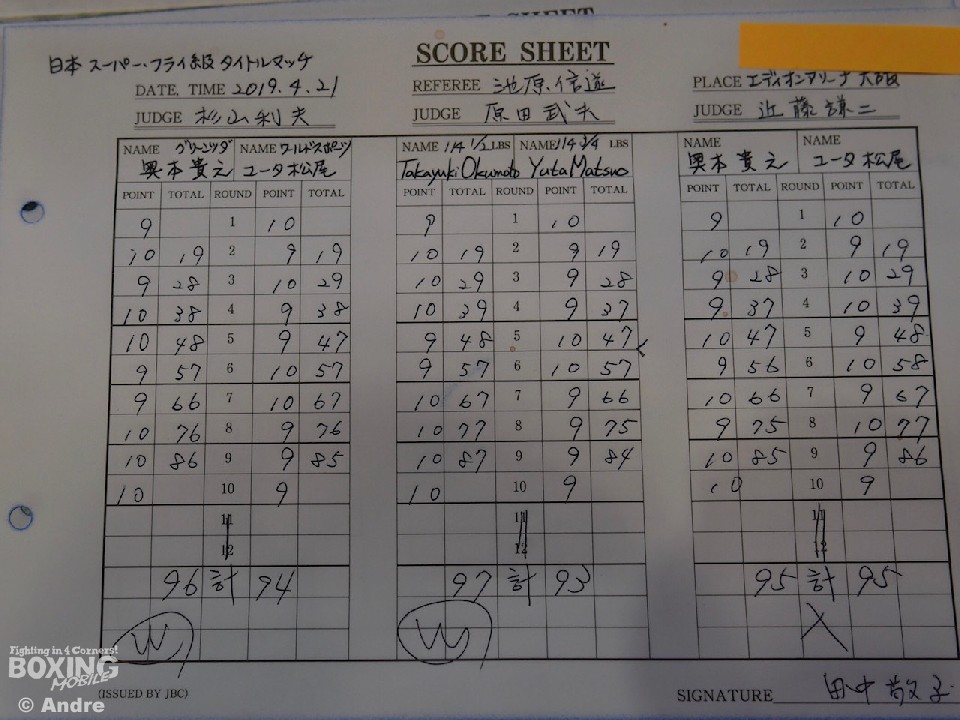 SCORE SHEET
日本スーパー・フライ級タイトルマッチ
DATE, TIME 2019.4.21 REFEREE 池原信遂 PLACE エディオンアリーナ大阪
JUDGE 杉山利夫 JUDGE 原田武夫 JUDGE 近藤謙二
NAME グリーンツダ NAME ワールドスポーツ NAME 114 1/2 LBS NAME 114 3/4 LBS NAME NAME
奥本貴之 ユータ松尾 Takayuki Okumoto Yuta Matsuo 奥本貴之 ユータ松尾
POINT TOTAL ROUND POINT TOTAL POINT TOTAL ROUND POINT TOTAL POINT TOTAL ROUND POINT TOTAL
9 1 10 9 1 10 9 1 10
10 19 2 9 19 10 19 2 9 19 10 19 2 9 19
9 28 3 10 29 10 29 3 9 28 9 28 3 10 29
10 38 4 9 38 10 39 4 9 37 9 37 4 10 39
10 48 5 9 47 9 48 5 10 47 10 47 5 9 48
9 57 6 10 57 9 57 6 10 57 9 56 6 10 58
9 66 7 10 67 10 67 7 9 66 10 66 7 9 67
10 76 8 9 76 10 77 8 9 75 9 75 8 10 77
10 86 9 9 85 10 87 9 9 84 10 85 9 9 86
10 10 9 10 10 9 10 10 9
11 11 11
12 12 12
96 計 94 97 計 93 95 計 95
W W X
Fighting in 4 Corners!
BOXING
MOBILE
(ISSUED BY JBC) SIGNATURE 田中敬子
© Andre